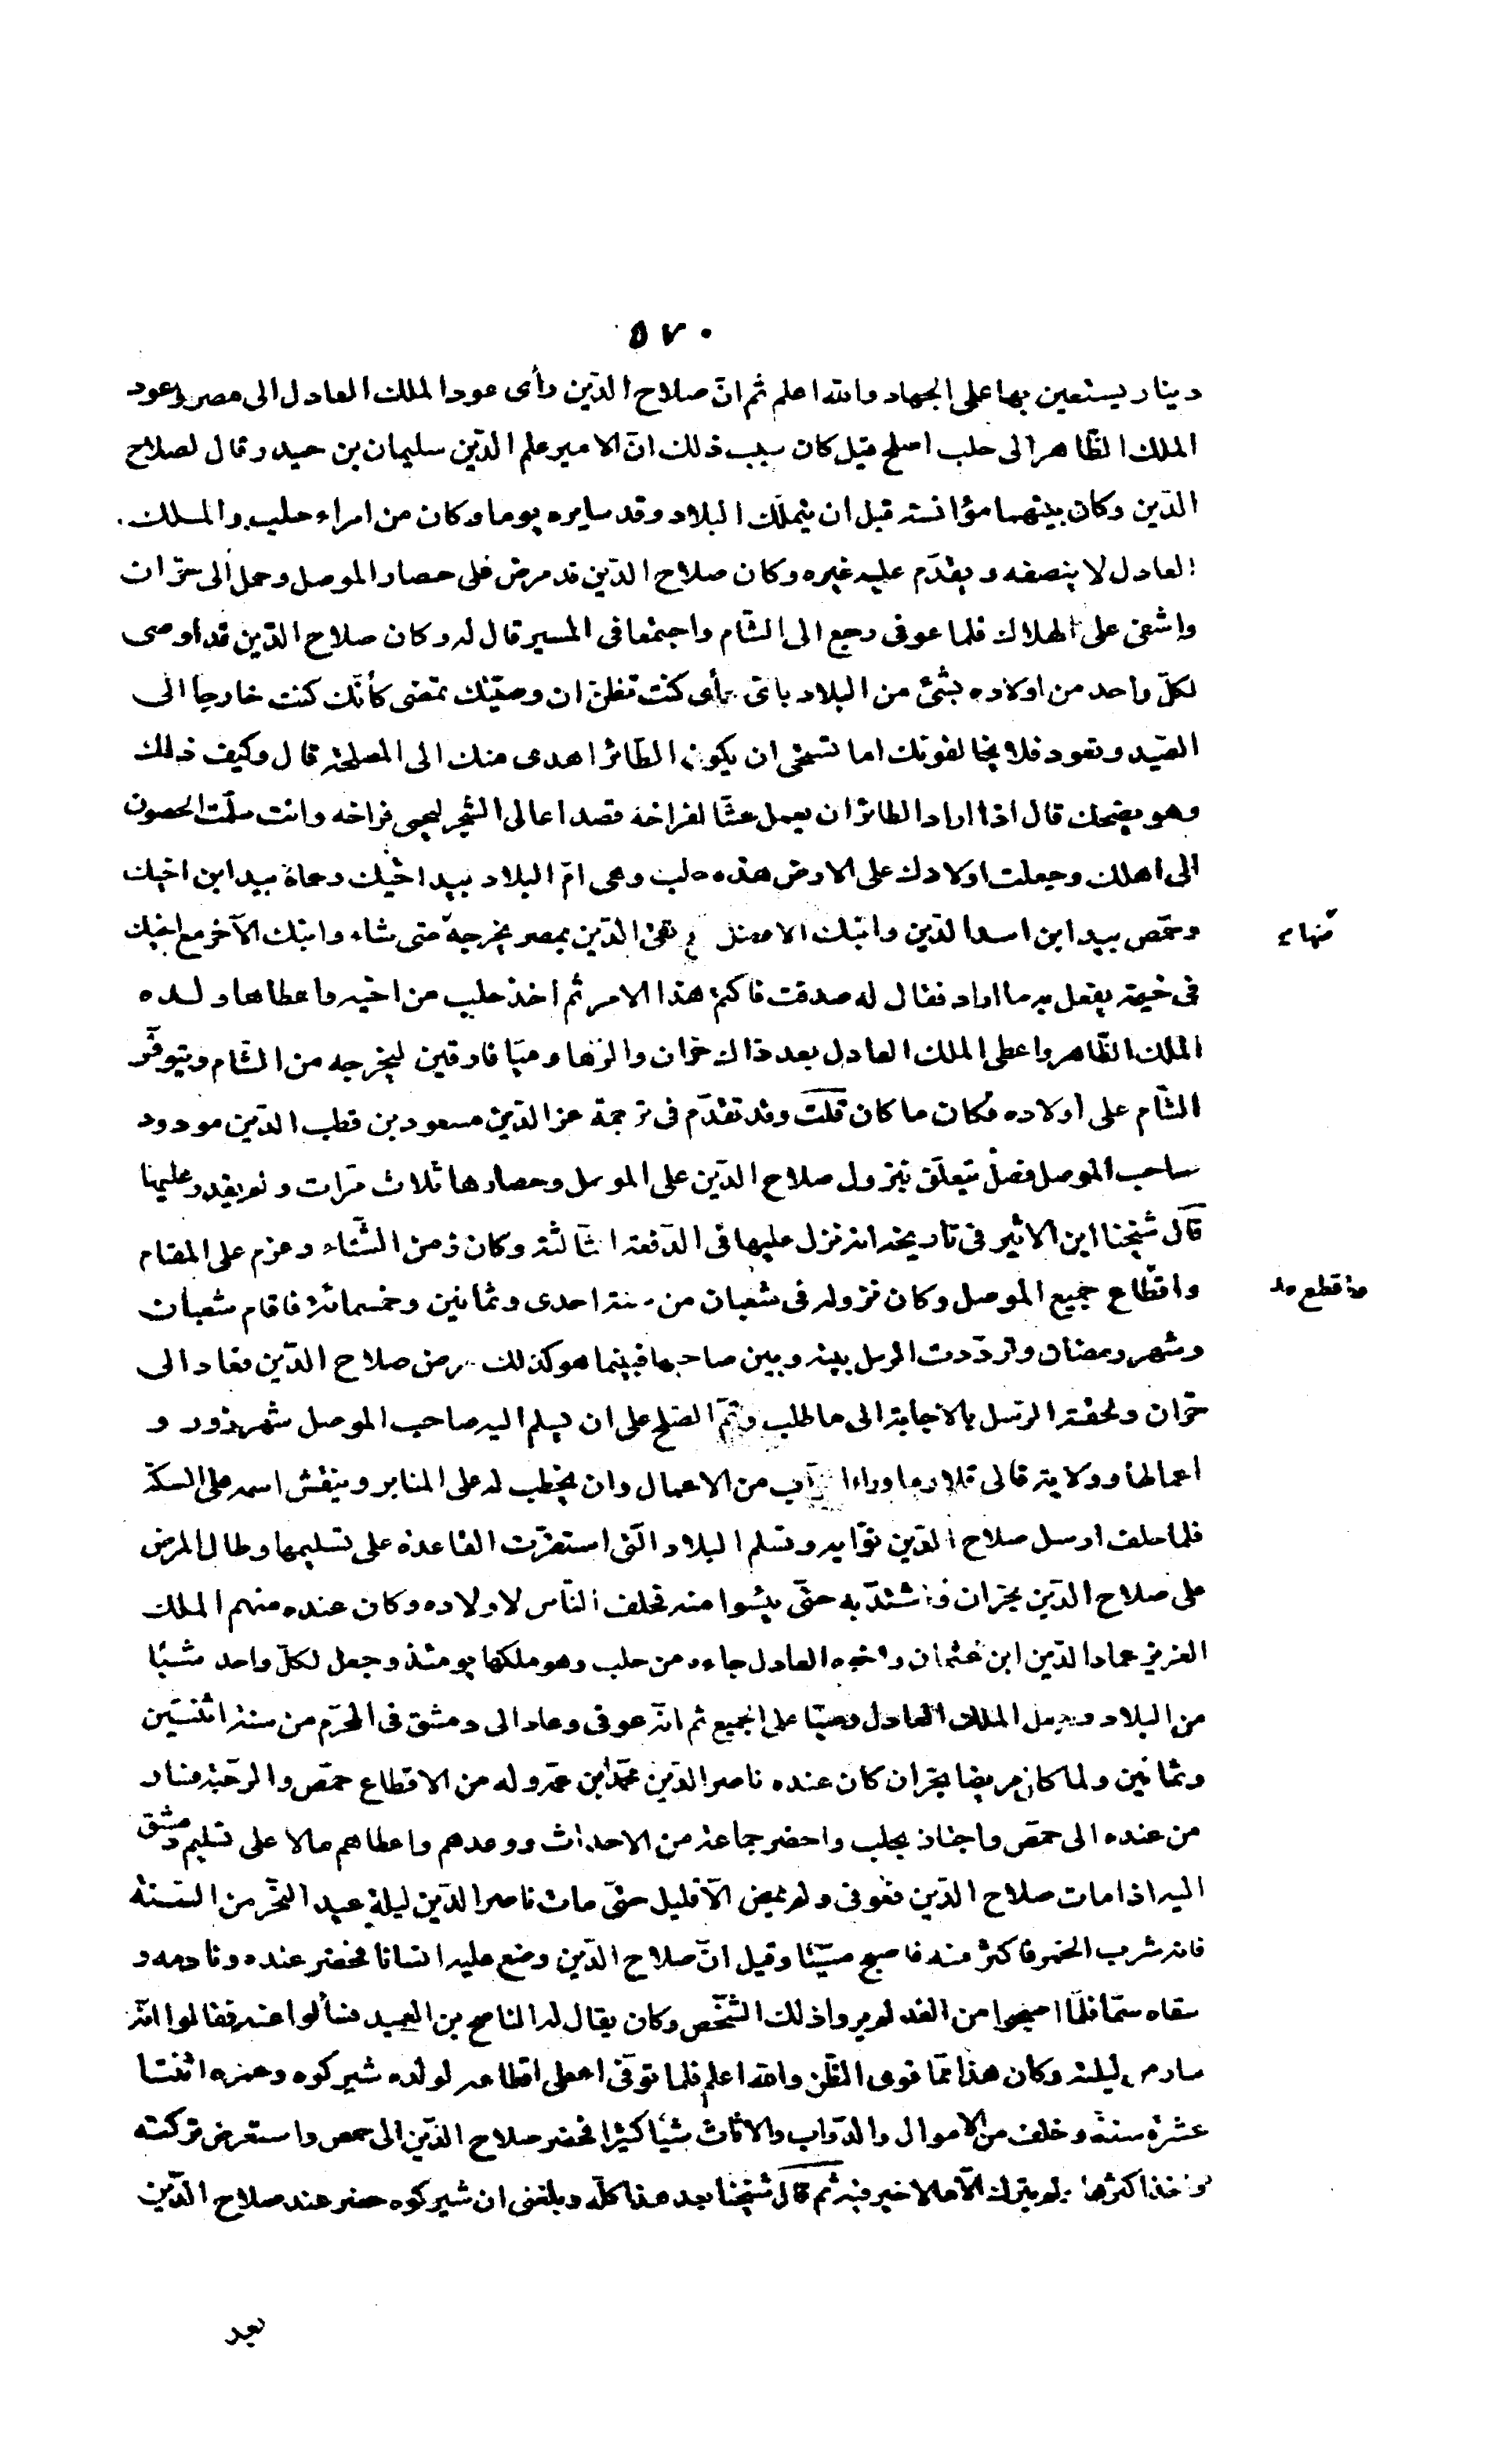 ٥٧٠
دينار يستعين بها على الجهاد والله اعلم ثم انّ صلاح الدّين رأى عود الملك العادل الى مصر وعود
الملك الظّاهر الى حلب اصلح قيل كان سبب ذلك انّ الامير علم الدّين سليمان بن حيدر قال لصلاح
الدّين وكان بينهما مؤانسة قبل ان يتملّك البلاد وقد سايره يوما وكان من امراء حلب والملك
العادل لا ينصفه ويقدّم عليه غيره وكان صلاح الدّين قد مرض على حصار الموصل وحمل الى حرّان
واشفى على الهلاك فلما عوفى رجع الى الشّام واجتمعا فى المسير قال له وكان صلاح الدّين قد اوصى
لكلّ واحد من اولاده بشئ من البلاد باىّ رأى كنت تظنّ ان وصيّتك تمضى كأنّك كنت خارجا الى
الصّيد وتعود فلا يخالفونك اما تستحى ان يكون الطّائر اهدى منك الى المصلحة قال وكيف ذلك
وهو يضحك قال اذا اراد الطائر ان يعمل عشّا لفراخه قصد اعالى الشجر ليحمى فراخه وانت سلّمت الحصون
الى اهلك وجعلت اولادك على الارض هذه حلب وهى امّ البلاد بيد اخيك وحماة بيد ابن اخيك
وحمص بيد ابن اسد الدّين وابنك الافضل مع تقىّ الدّين بمصر يخرجه متى شاء وابنك الآخر مع اخيك
منها
فى خيمة يفعل به ما اراد فقال له صدقت فاكتم هذا الامر ثم اخذ حلب من اخيه واعطاها ولده
الملك الظّاهر واعطى الملك العادل بعد ذاك حرّان والرّها وميّافارقين ليخرجه من الشّام ويتوفّر
الشّام على اولاده فكان ما كان قلت وقد تقدّم فى ترجمة عز الدّين مسعود بن قطب الدّين مودود
صاحب الموصل فصل يتعلّق بنزول صلاح الدّين على الموصل وحصارها ثلاث مرّات ولم يقدر عليها
قال شيخنا ابن الاثير فى تاريخه انه نزل عليها فى الدّفعة الثّالثة وكان زمن الشّتاء وعزم على المقام
واقطاع جميع الموصل وكان نزوله فى شعبان من سنة احدى وثمانين وخمسمائة فاقام شعبان
واقطع
وشهر رمضان وتردّدت الرسل بينه وبين صاحبها فبينما هو كذلك مرض صلاح الدّين فعاد الى
حرّان ولحقته الرّسل بالاجابة الى ما طلب وتمّ الصّلح على ان يسلم اليه صاحب الموصل شهرزور و
اعمالها وولاية قالى قلا وما وراء الزّاب من الاعمال وان يخطب له على المنابر وينقش اسمه على السكّة
فلما حلف ارسل صلاح الدّين نوّابه وتسلم البلاد الّتى استقرّت القاعدة على تسليمها وطال المرض
على صلاح الدّين بحرّان واشتدّ به حتّى يئسوا منه فحلف النّاس لاولاده وكان عنده منهم الملك
العزيز عماد الدّين ابن عثمان واخوه العادل جاءه من حلب وهو ملكها يومئذ وجعل لكلّ واحد شيئا
من البلاد وجعل الملك العادل وصيّا على الجميع ثم انّه عوفى وعاد الى دمشق فى المحرّم من سنة اثنتين
وثمانين ولما كان مريضا بحرّان كان عنده ناصر الدّين محمّد ابن عمّه وله من الاقطاع حمص والرحبة فسار
من عنده الى حمص واجتاز بحلب واحضر جماعة من الاحداث ووعدهم واعطاهم مالا على تسليم دمشق
اليه اذا مات صلاح الدّين فعوفى ولم يمض الّا قليل حتّى مات ناصر الدّين ليلة عيد النّحر من السّنة
فانه شرب الخمر فاكثر منه فاصبح ميّتا وقيل انّ صلاح الدّين وضع عليه انسانا فحضر عنده ونادمه و
سقاه سمّا فلمّا اصبحوا من الغد لم يروا ذلك الشّخص وكان يقال له الناصح بن العميد فسألوا عنه فقالوا انّه
سار من ليلته وكان هذا ممّا قوى الظّن والله اعلم فلما توفّى اعطى اقطاعه لولده شيركوه وعمره اثنتا
عشرة سنة وخلف من الاموال والدّواب والاثاث شيئا كثيرا فحضر صلاح الدّين الى حمص واستعرض تركته
واخذ اكثرها ولم يترك الّا ما لا خير فيه ثم قال شيخنا بعد هذا كلّه وبلغنى ان شيركوه حضر عند صلاح الدّين
بعد